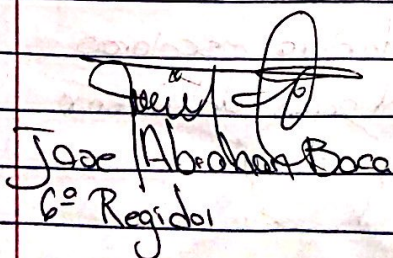 Jose Abraham Baca
6º Regidor